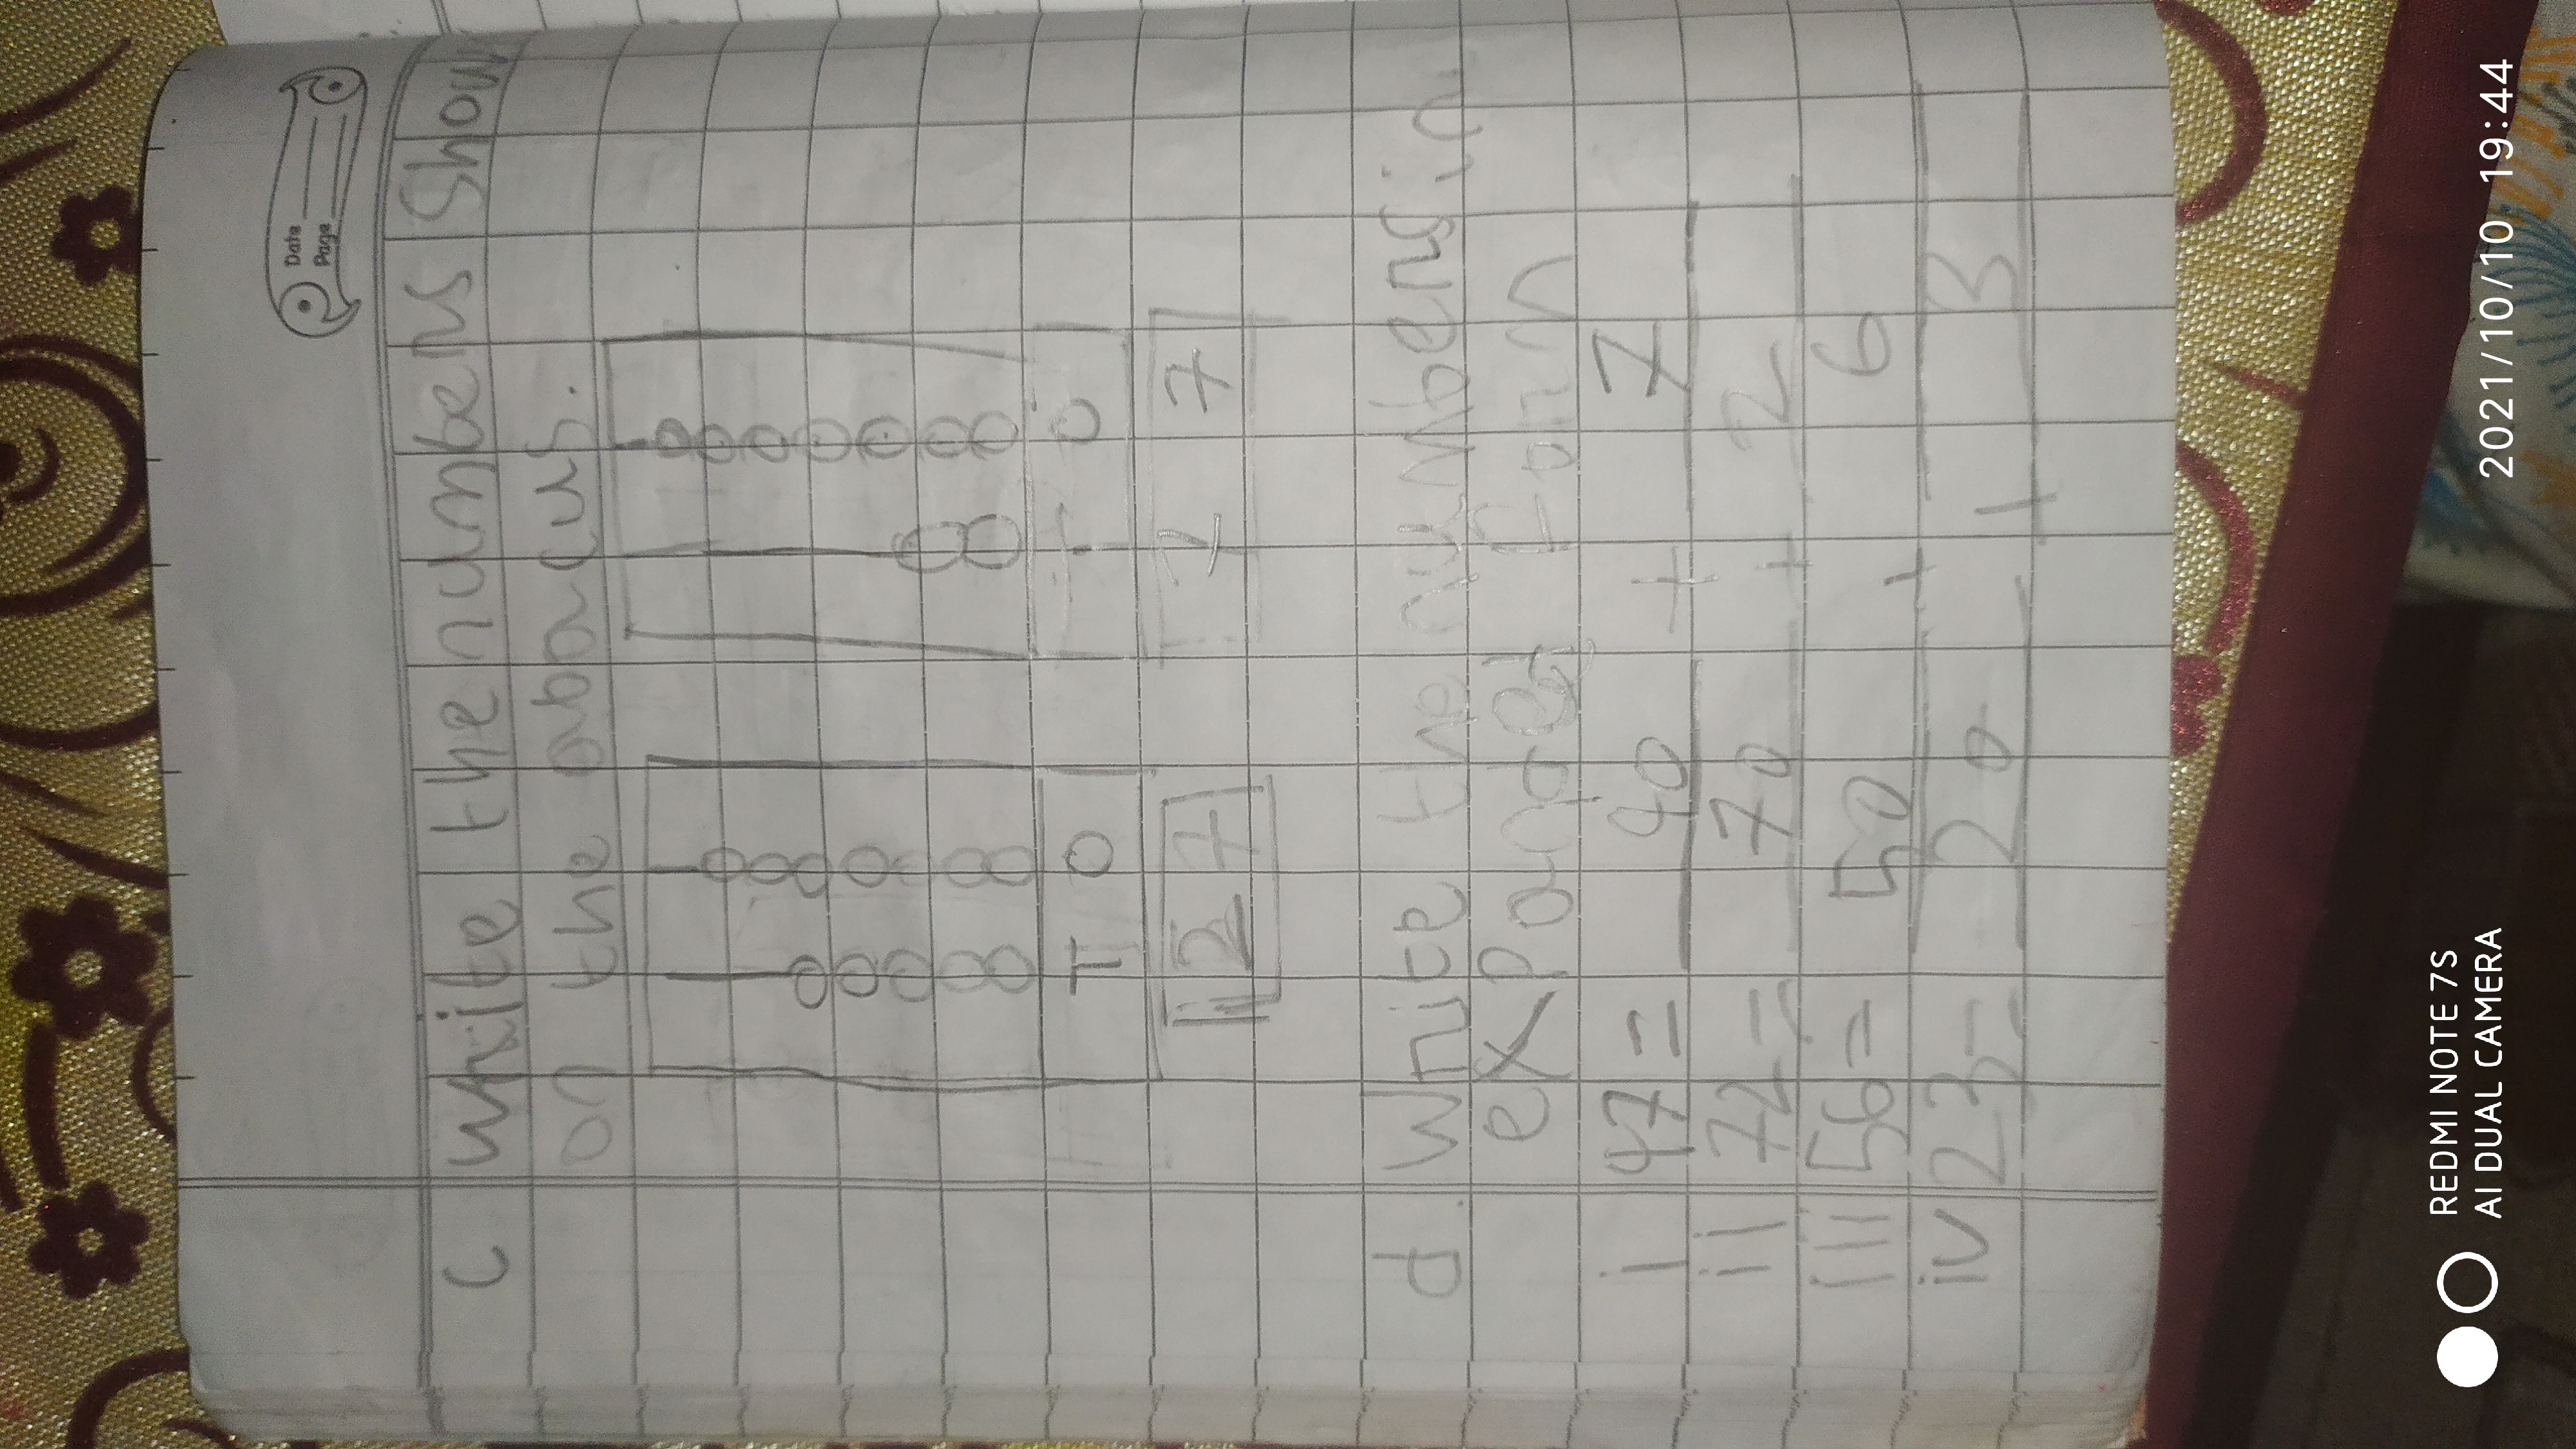 Date
Page
c write the numbers Show
on the abacus.
T O
O
2 7
7
d. Write the numbers in
expanded form
i 47 = 40 + 7
ii 72 = 70 + 2
iii 56 = 50 + 6
iv 23 = 20 + 3
REDMI NOTE 7S
AI DUAL CAMERA
2021/10/10 19:44